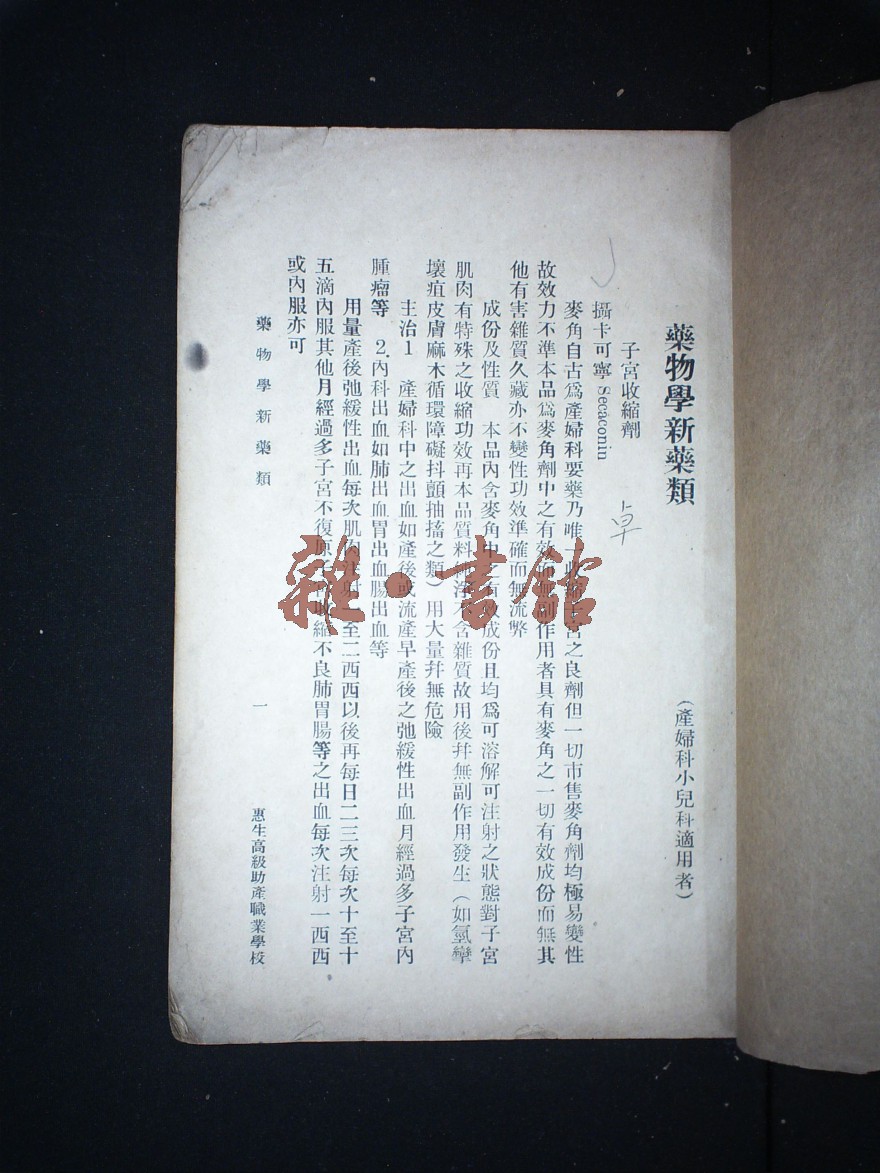 藥物學新藥類
(產婦科小兒科適用者)
子宮收縮劑
攝卡可寧 Secaconin
麥角自古爲產婦科要藥乃唯一收縮子宮之良劑但一切市售麥角劑均極易變性
故效力不準本品爲麥角劑中之有效而無副作用者具有麥角之一切有效成份而無其
他有害雜質久藏亦不變性功效準確而無流弊
成份及性質 本品內含麥角中之有效成份且均爲可溶解可注射之狀態對子宮
肌肉有特殊之收縮功效再本品質料純淨不含雜質故用後幷無副作用發生(如氫攣
壞疽皮膚麻木循環障礙抖顫抽搐之類)用大量幷無危險
主治1 產婦科中之出血如產後或流產早產後之弛緩性出血月經過多子宮內
腫瘤等 2.內科出血如肺出血胃出血腸出血等
用量產後弛緩性出血每次肌肉注射一至二西西以後再每日二三次每次十至十
五滴內服其他月經過多子宮不復原子宮收縮不良肺胃腸等之出血每次注射一西西
或內服亦可
藥物學新藥類
一
惠生高級助產職業學校
卓
雜·書館